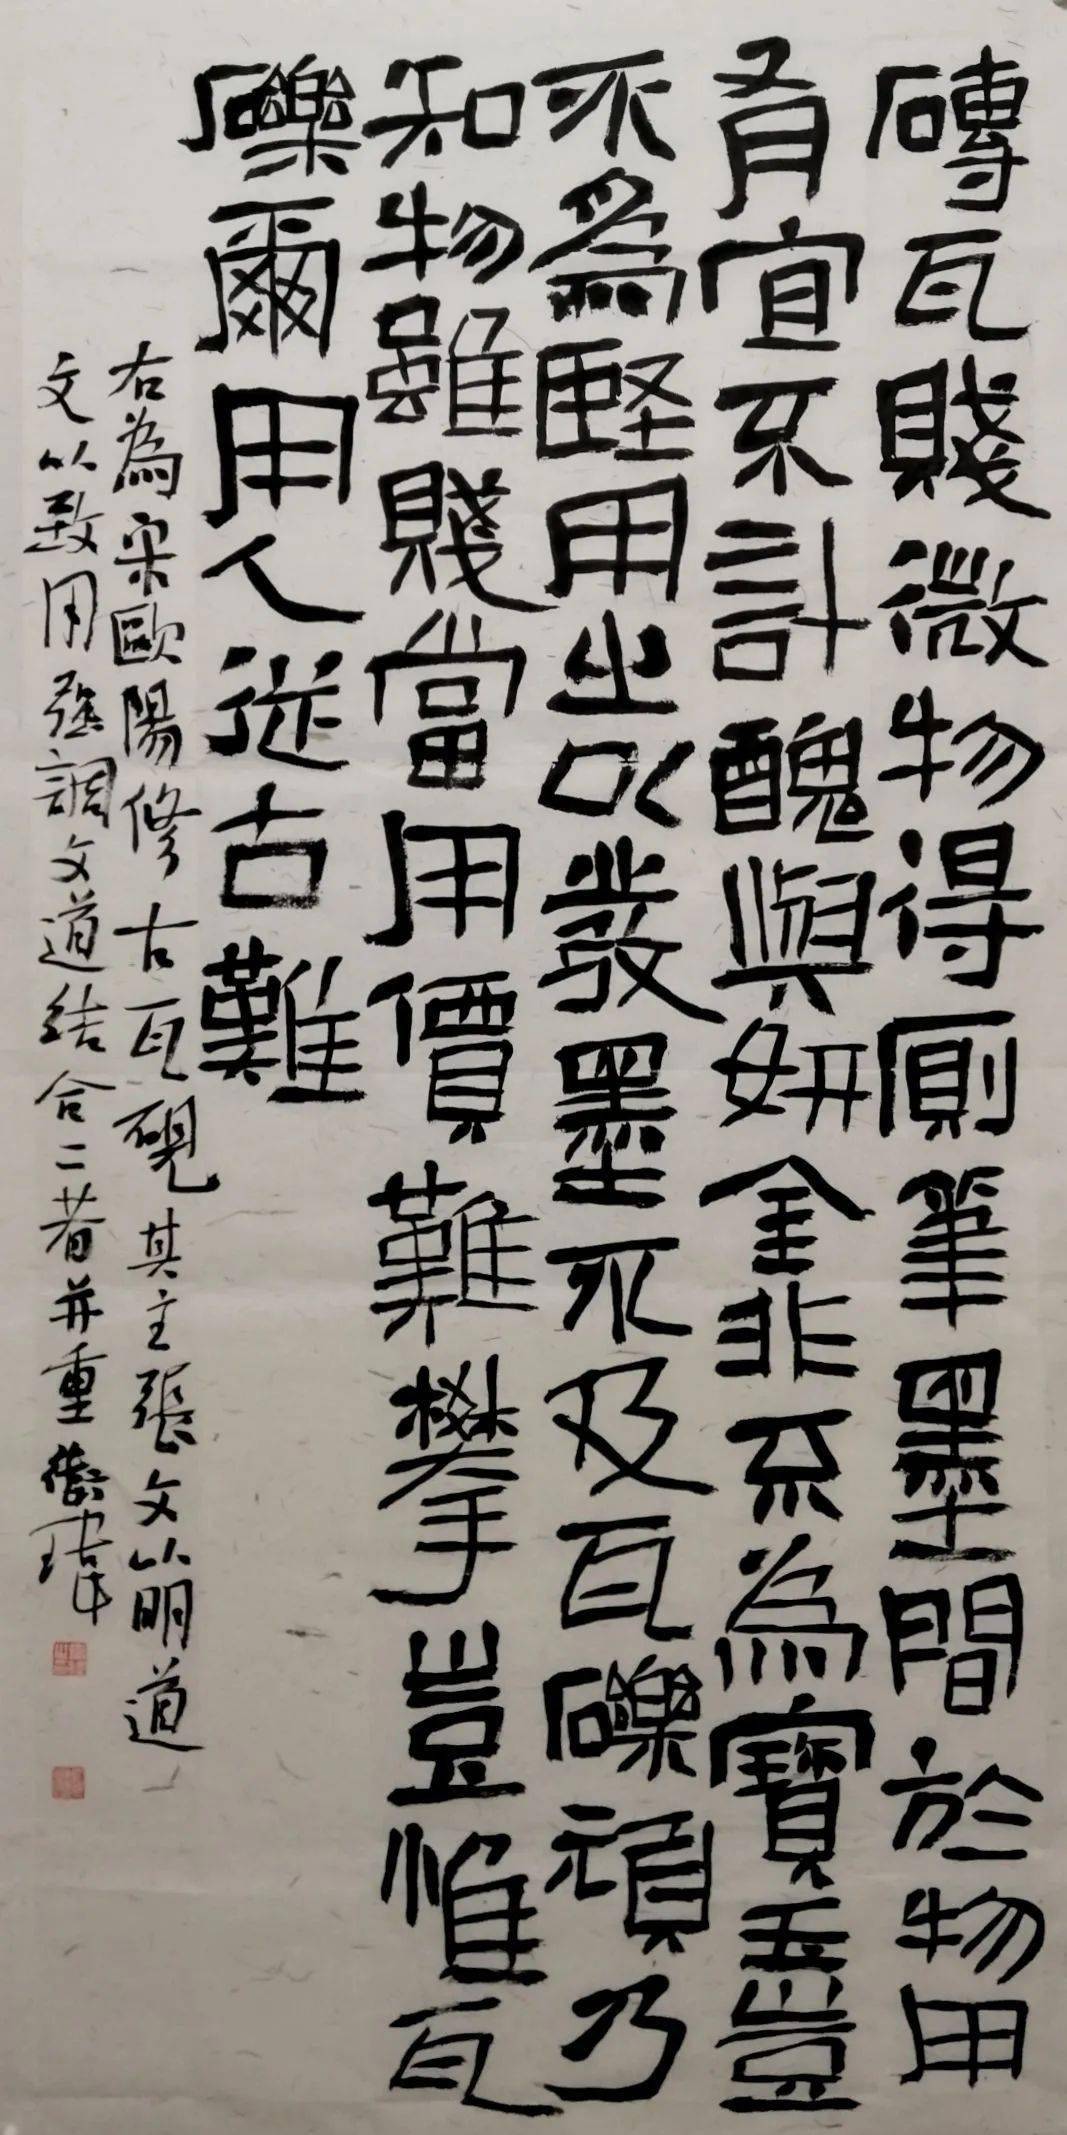 磚瓦賤微物得厠筆墨間於物用
有宜不計醜與妍金非不為寶玉豈
不為堅用之以發墨不及瓦礫頑乃
知物雖賤當用價難攀豈惟瓦
礫爾用人從古難
右為宋歐陽修古瓦硯其主張文以明道
文以致用强調文道結合二者并重